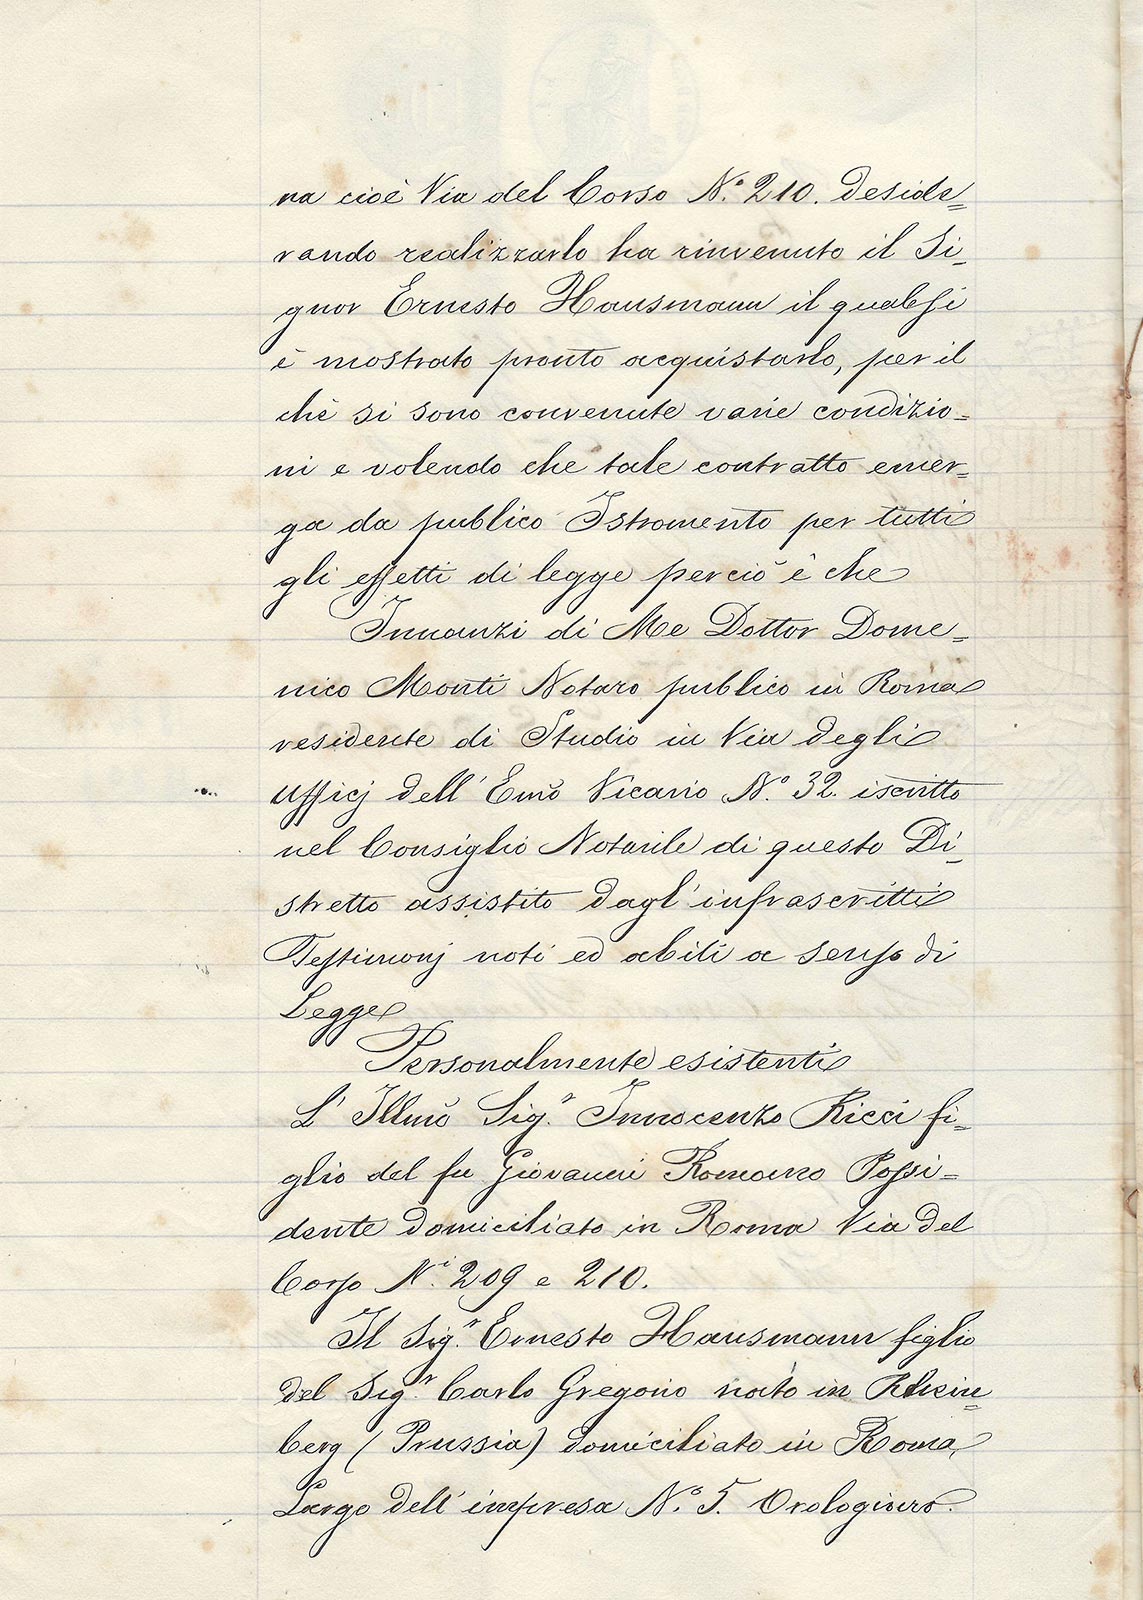 na cioè Via del Corso N.° 210. Deside=
rando realizzarlo ha rinvenuto il Si=
gnor Ernesto Hausmann il quale si
è mostrato pronto acquistarlo, per il
chè si sono convenute varie condizio=
ni e volendo che tale contratto emer=
ga da publico Istromento per tutti
gli effetti di legge perciò è che
Innanzi di Me Dottor Dome=
nico Monti Notaro publico in Roma
residente di Studio in Via degli
Ufficj dell' Emo Vicario N.° 32. iscritto
nel Consiglio Notarile di questo Di=
stretto assistito dagl' infrascritti
Testimonj noti ed abili a senso di
Legge
Personalmente esistenti
L' Illmo Sig.r Innocenzo Ricci fi=
glio del fu Giovanni Romano Possi=
dente domiciliato in Roma Via del
Corso N.i 209 e 210.
Il Sig.r Ernesto Hausmann figlio
del Sig.r Carlo Gregorio nato in Rhein=
berg (Prussia) domiciliato in Roma
Largo dell' impresa N.° 5. Orologiaro.